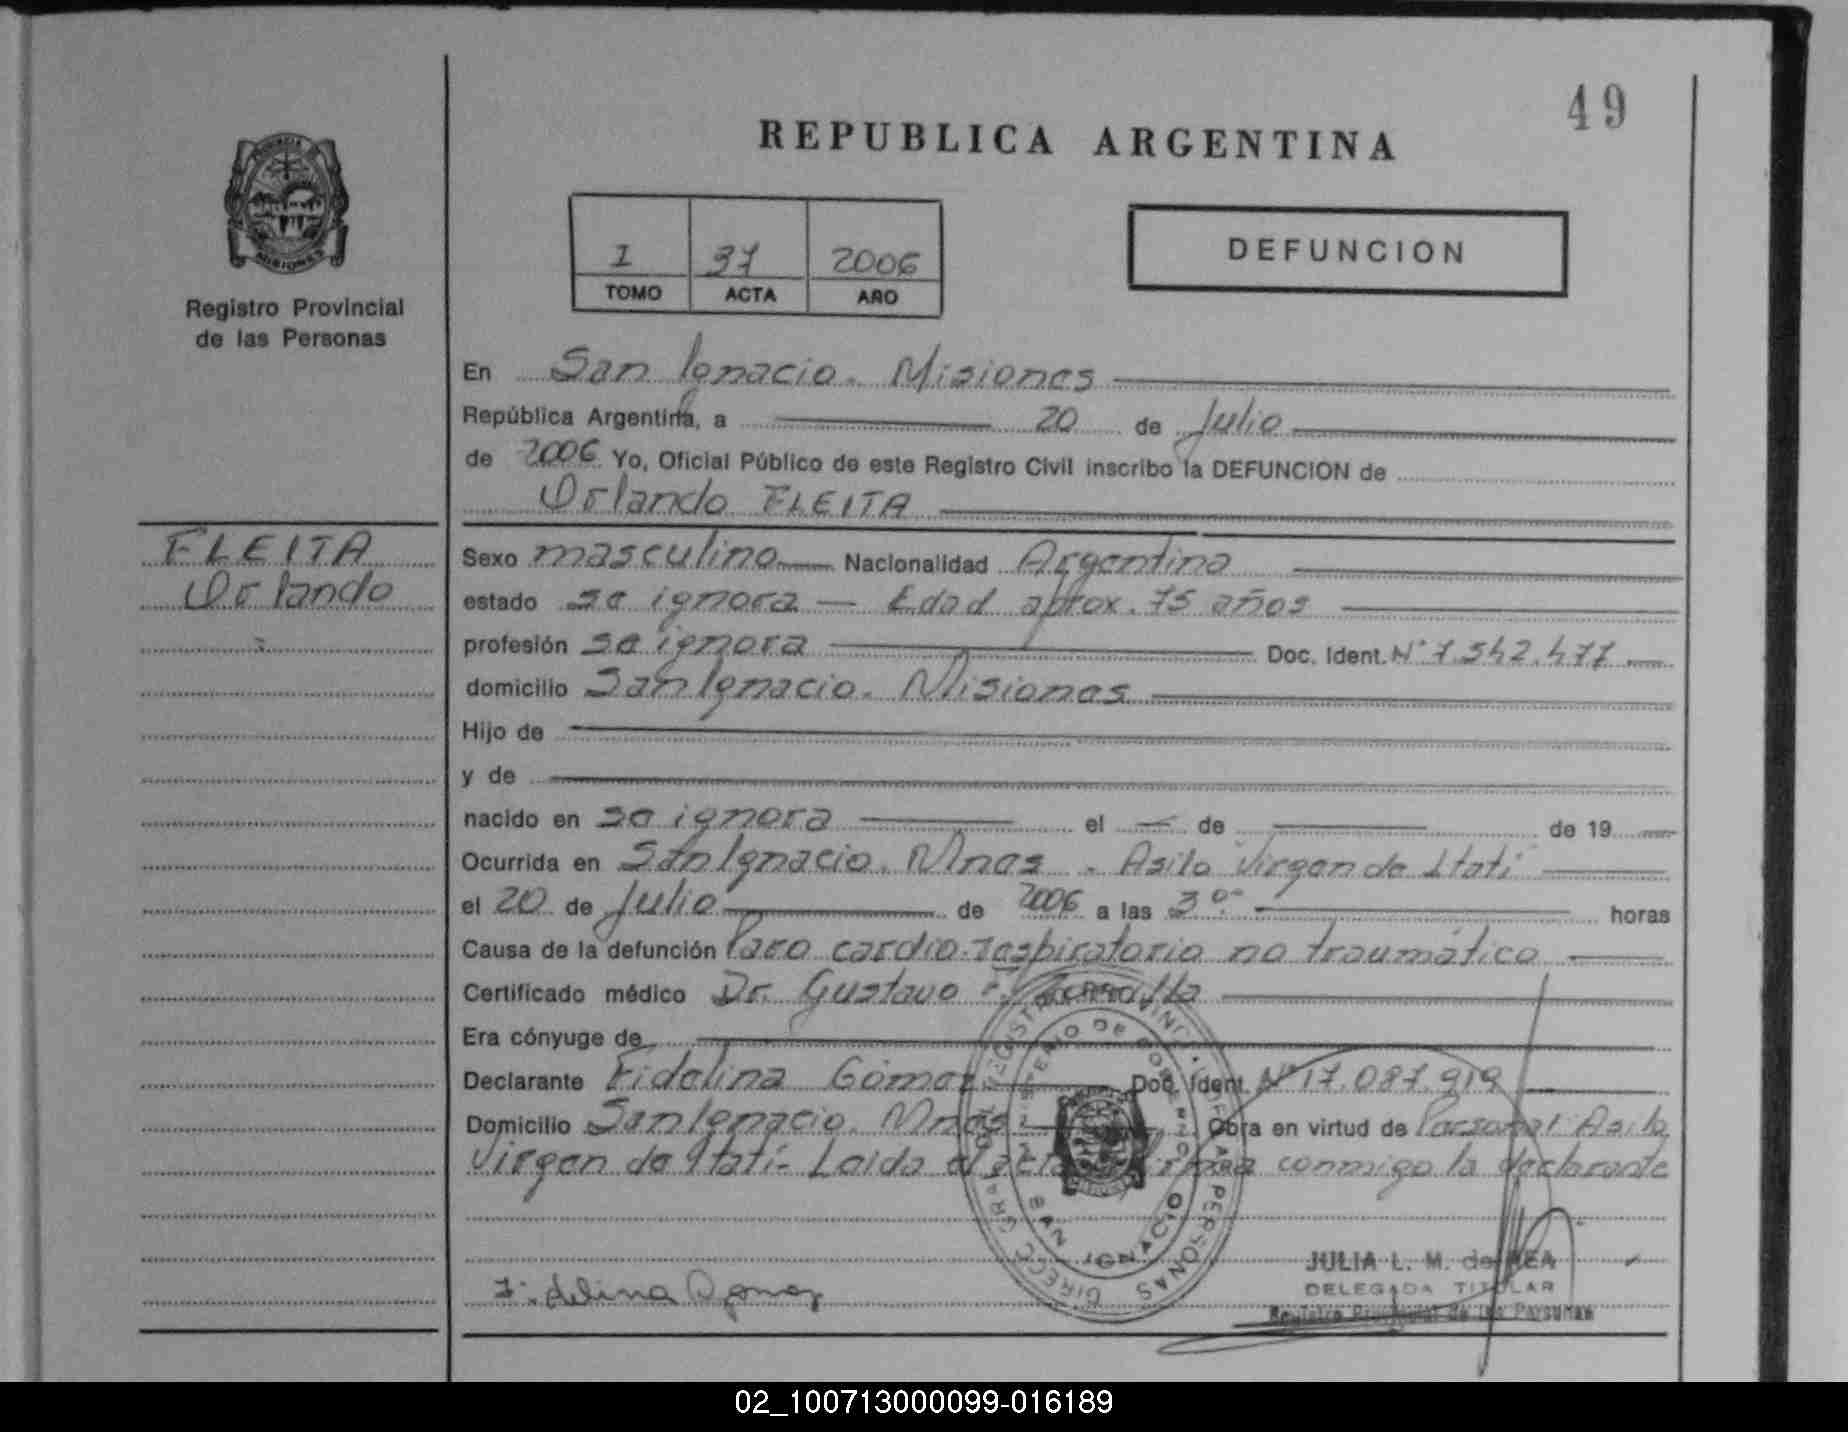 49
REPUBLICA ARGENTINA
I 37 2006
TOMO ACTA AÑO
DEFUNCION
Registro Provincial
de las Personas
En San Ignacio. Misiones
República Argentina, a 20 de Julio
de 2006 Yo, Oficial Público de este Registro Civil inscribo la DEFUNCION de
Orlando FLEITA
FLEITA
Orlando
Sexo masculino Nacionalidad Argentina
estado se ignora - Edad aprox. 75 años
profesión se ignora Doc. Ident. Nº 7.542.477
domicilio San Ignacio. Misiones
Hijo de
y de
nacido en se ignora el de de 19
Ocurrida en San Ignacio. Mnes. Asilo Virgen de Itatí
el 20 de Julio de 2006 a las 3º horas
Causa de la defunción Paro cardio-respiratorio no traumático
Certificado médico Dr. Gustavo
Era cónyuge de
Declarante Fidelina Gómez Doc. Ident. Nº 17.087.919
Domicilio San Ignacio. Mnes Obra en virtud de Personal Asilo
Virgen de Itatí- Leida el acta firma conmigo la declarante
Fidelina Gomez
JULIA L. M. de REA
DELEGADA TITULAR
Registro Provincial de las Personas
SAN IGNACIO
02_100713000099-016189